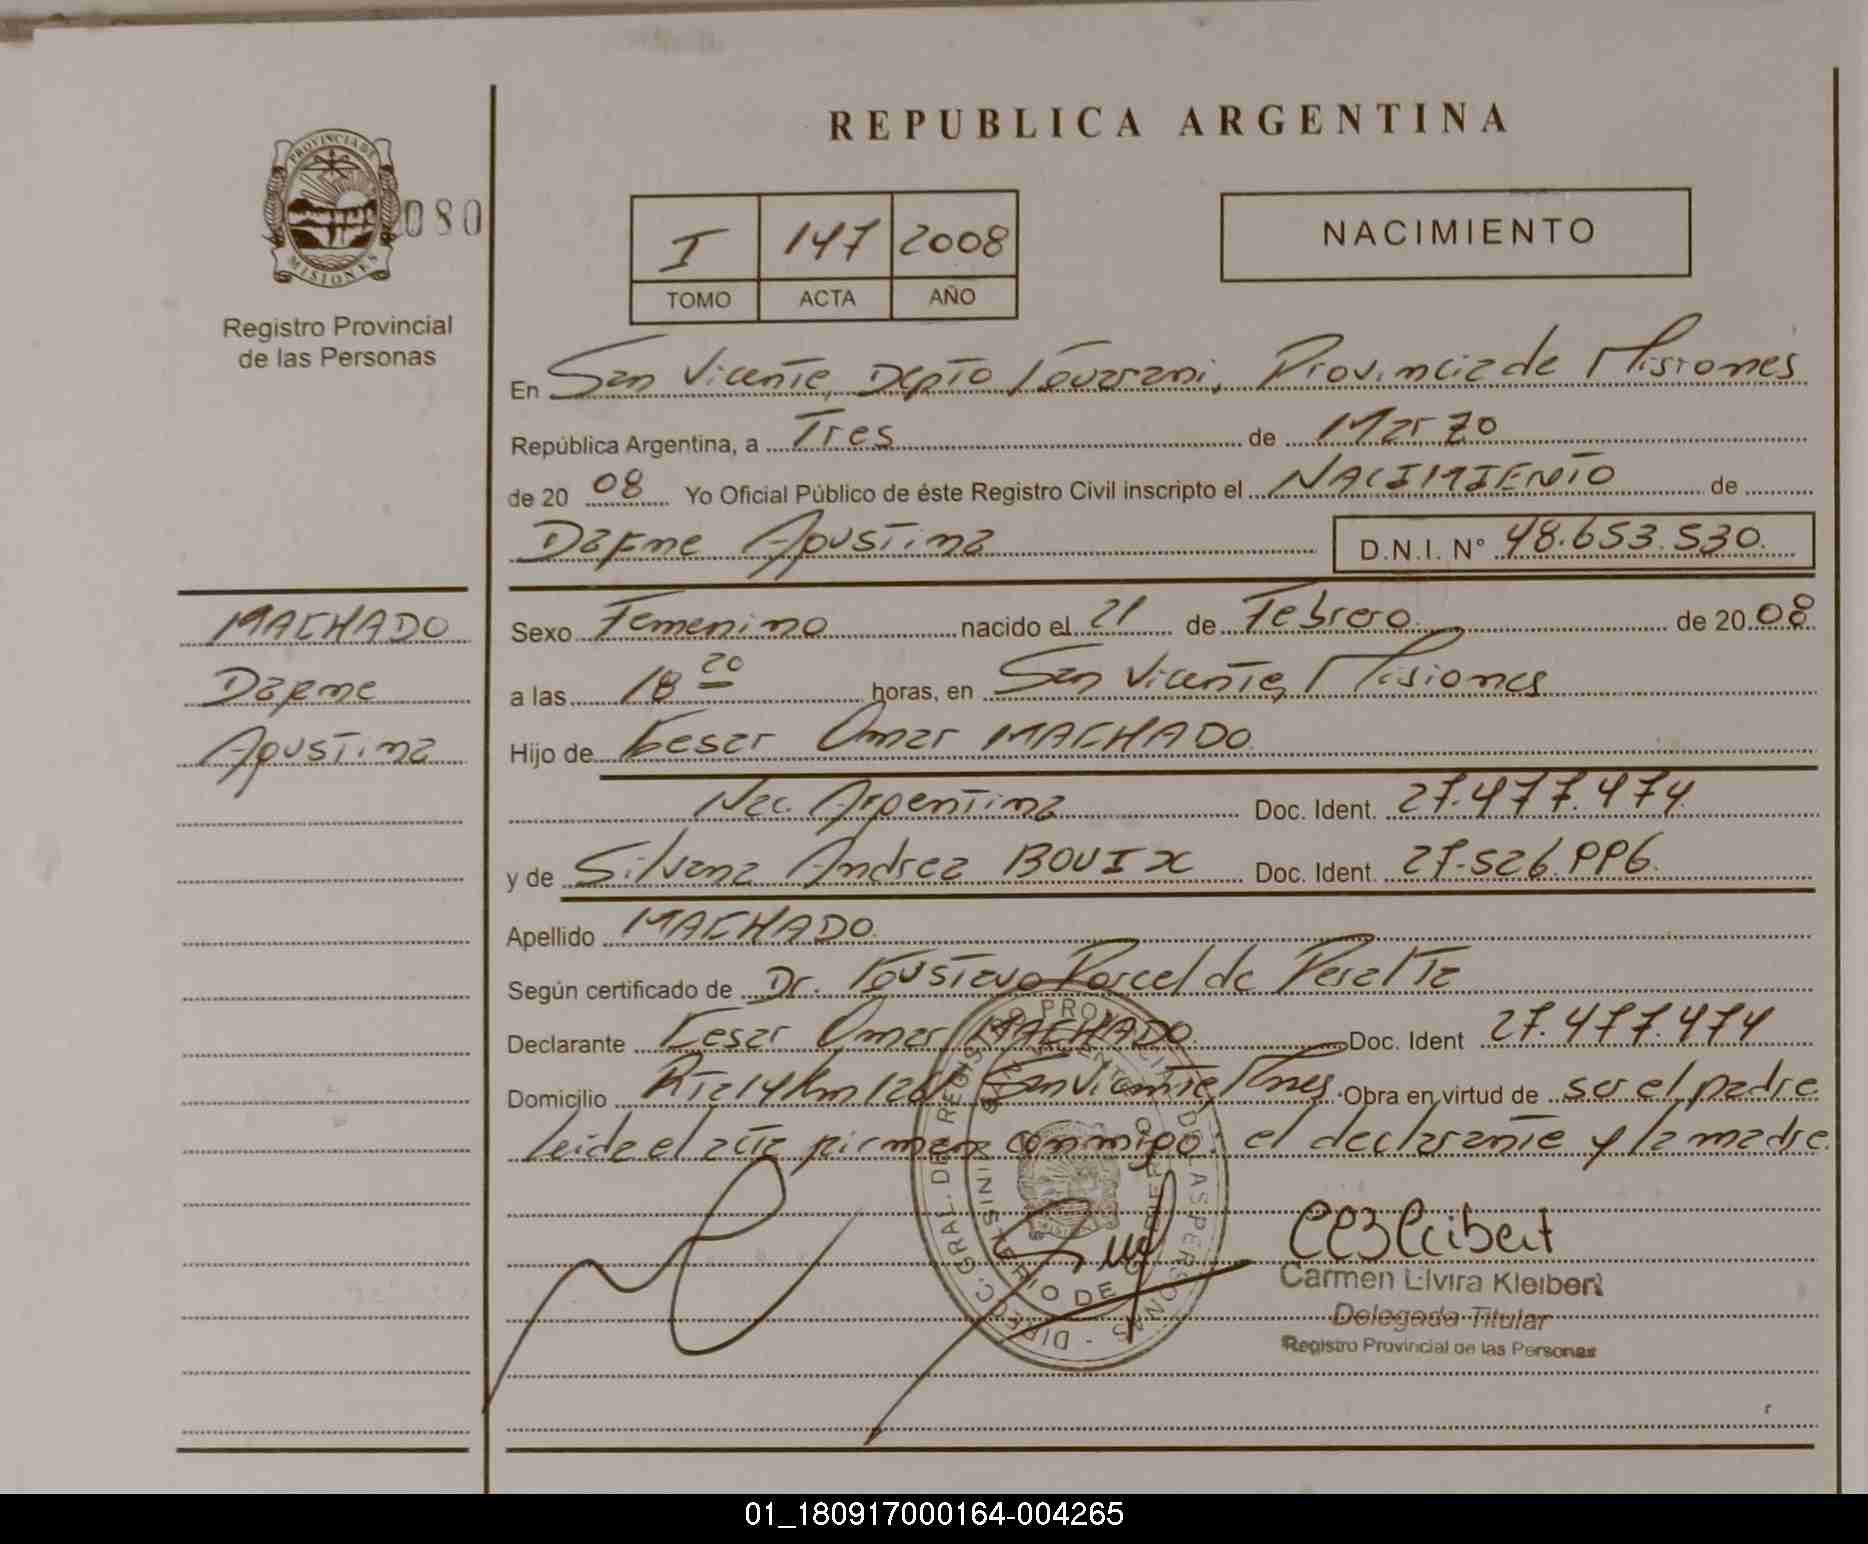 REPUBLICA ARGENTINA
PROVINCIA DE
MISIONES
080
Registro Provincial
de las Personas
I 147 2008
TOMO ACTA AÑO
NACIMIENTO
En San Vicente, Depto Guarani, Provincia de Misiones
República Argentina, a Tres de Marzo
de 20 08 Yo Oficial Público de éste Registro Civil inscripto el NACIMIENTO de
Dafne Agustina D.N.I. N° 48.653.530.
MACHADO
Dafne
Agustina
Sexo Femenino nacido el 21 de Febrero de 20 08
a las 18 20 horas, en San Vicente, Misiones
Hijo de Cesar Omar MACHADO
Nac. Argentina Doc. Ident. 27.477.474
y de Silvana Andrea BOUIX Doc. Ident. 27.526.996.
Apellido MACHADO
Según certificado de Dr. Gustavo Porcel de Peralta
Declarante Cesar Omar MACHADO Doc. Ident 27.477.474
Domicilio Rta 14 Km San Vicente, Mnes. Obra en virtud de ser el padre
Leida el acta firman conmigo: el declarante y la madre.
DIRECC. GRAL. DE REGISTRO PROVINCIAL DE LAS PERSONAS
MINISTERIO DE GOBIERNO
Carmen Elvira Kleibert
Delegada Titular
Registro Provincial de las Personas
01_180917000164-004265